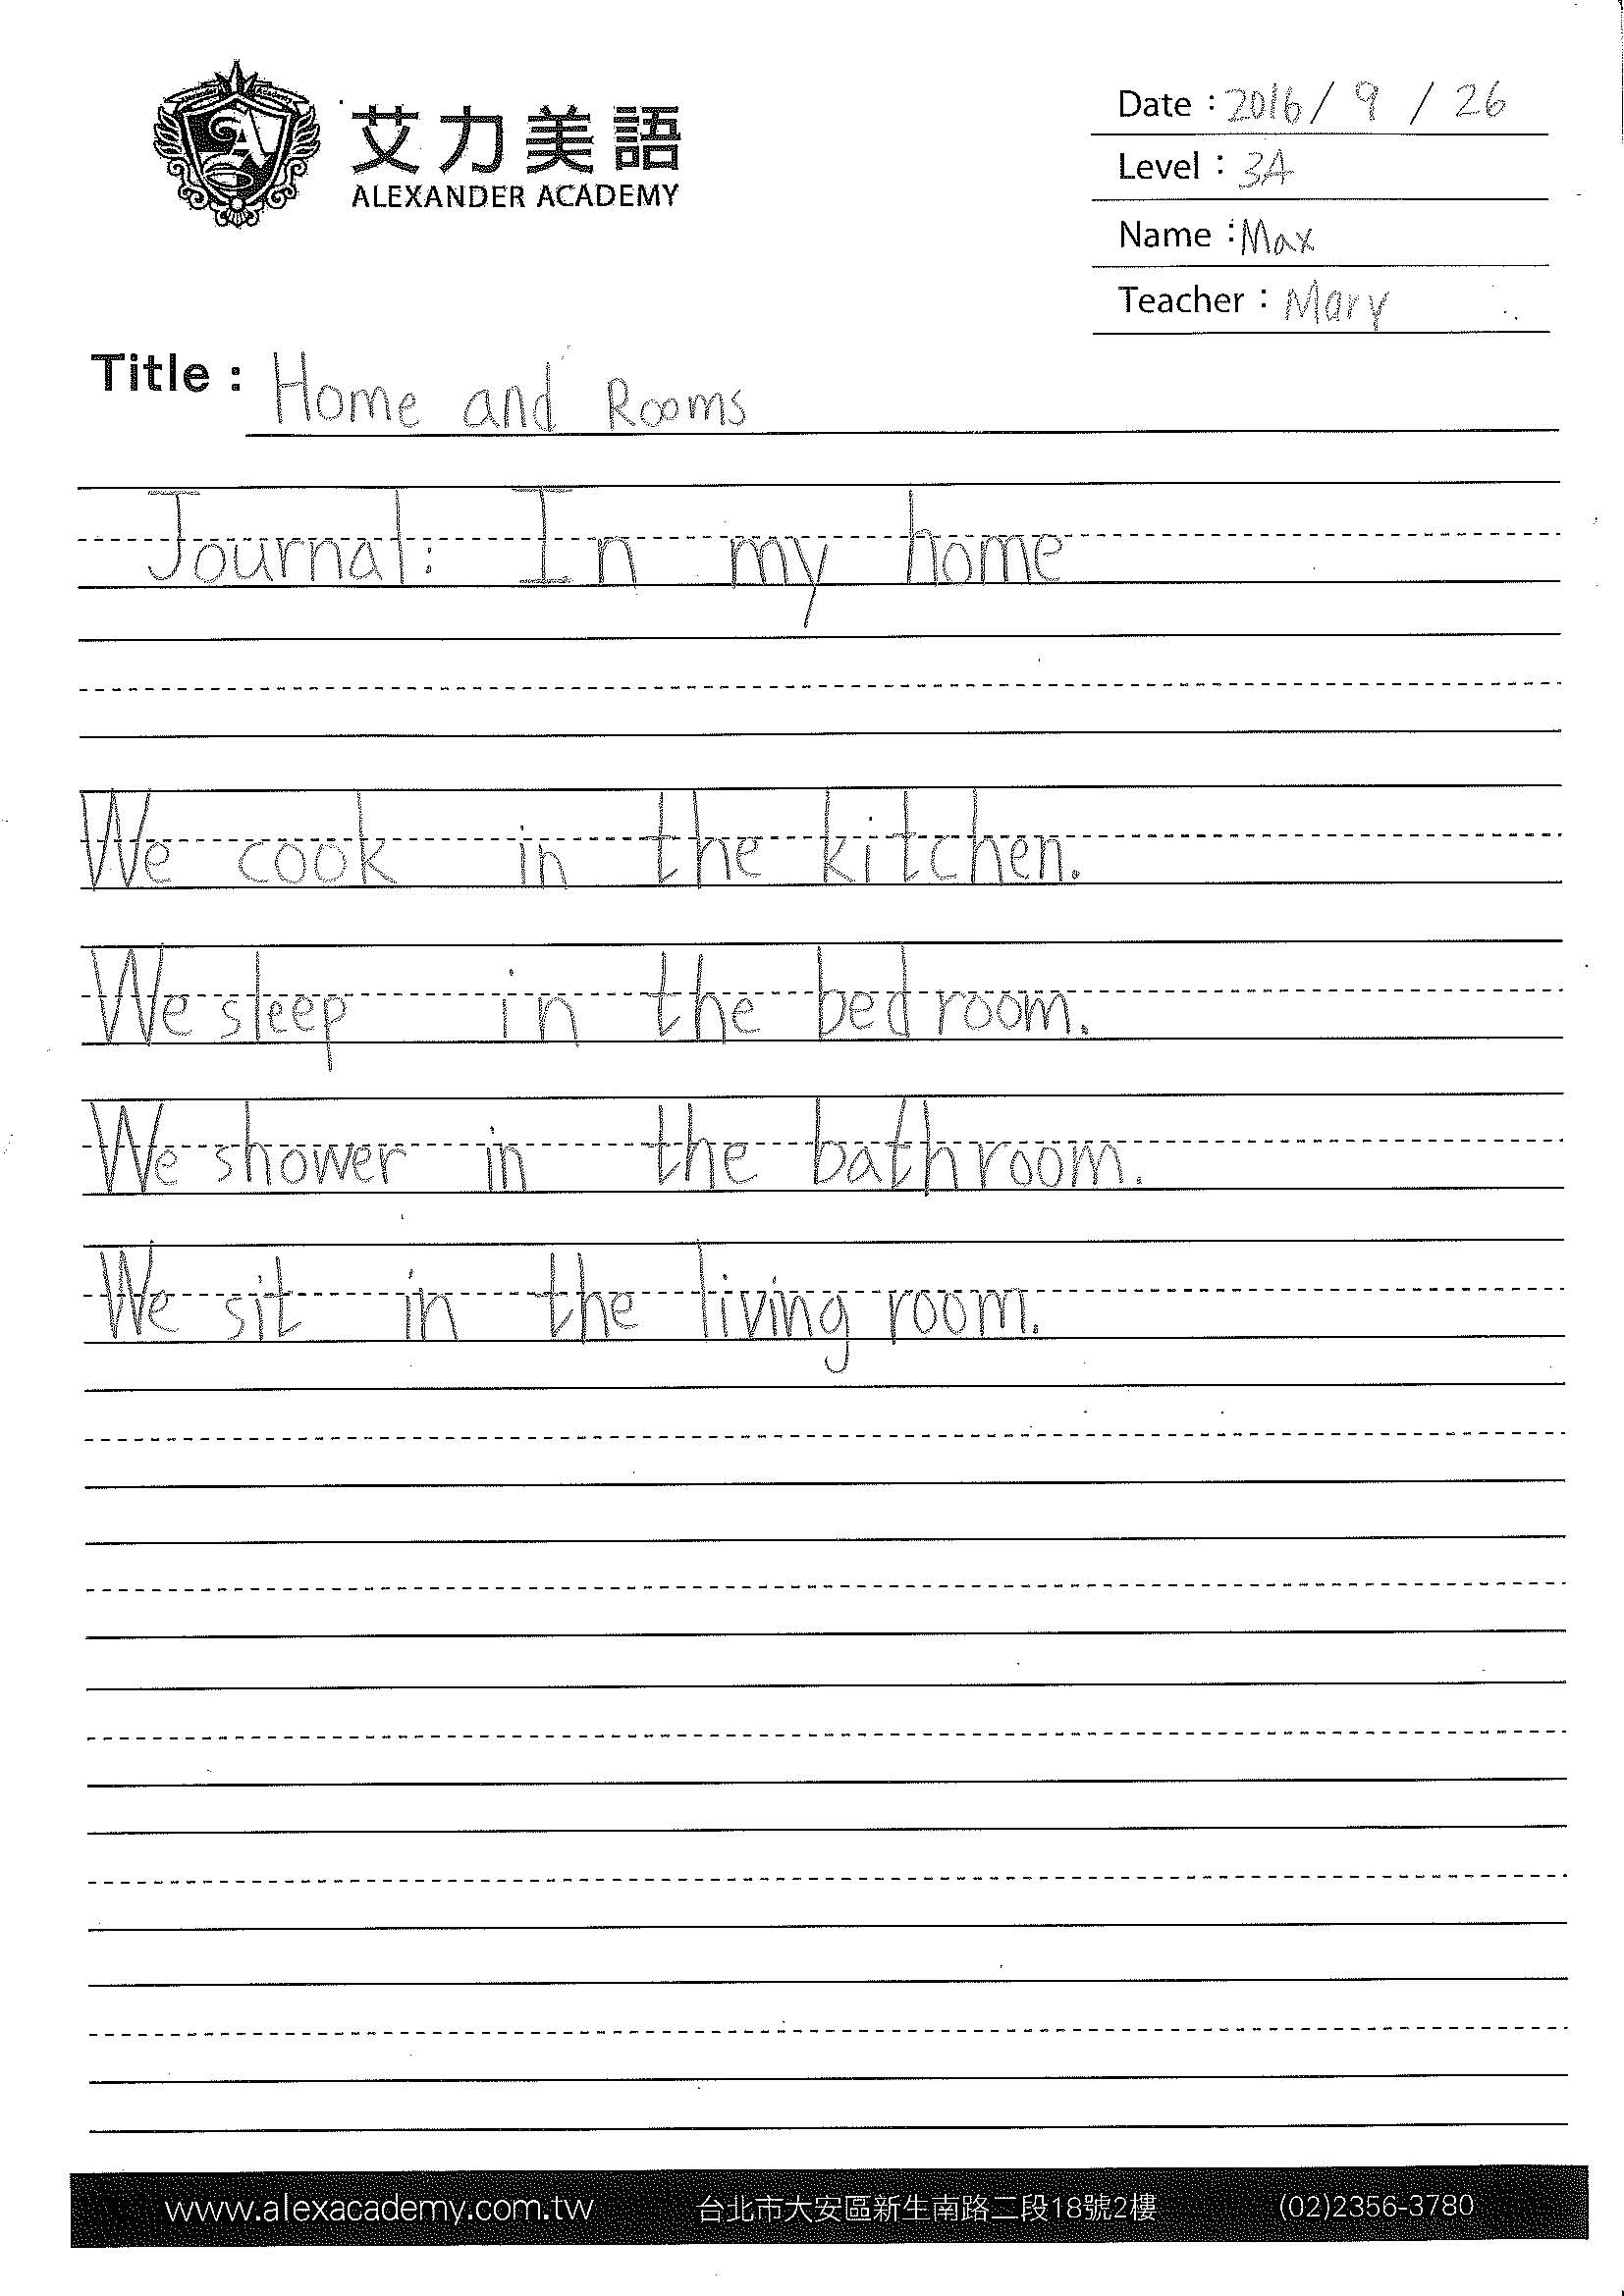 艾力美語
ALEXANDER ACADEMY
Date : 2016 / 9 / 26
Level : 3A
Name : Max
Teacher : Mary
Title : Home and Rooms
Journal: In my home
We cook in the kitchen.
We sleep in the bedroom.
We shower in the bathroom.
We sit in the living room.
www.alexacademy.com.tw 台北市大安區新生南路二段18號2樓 (02)2356-3780